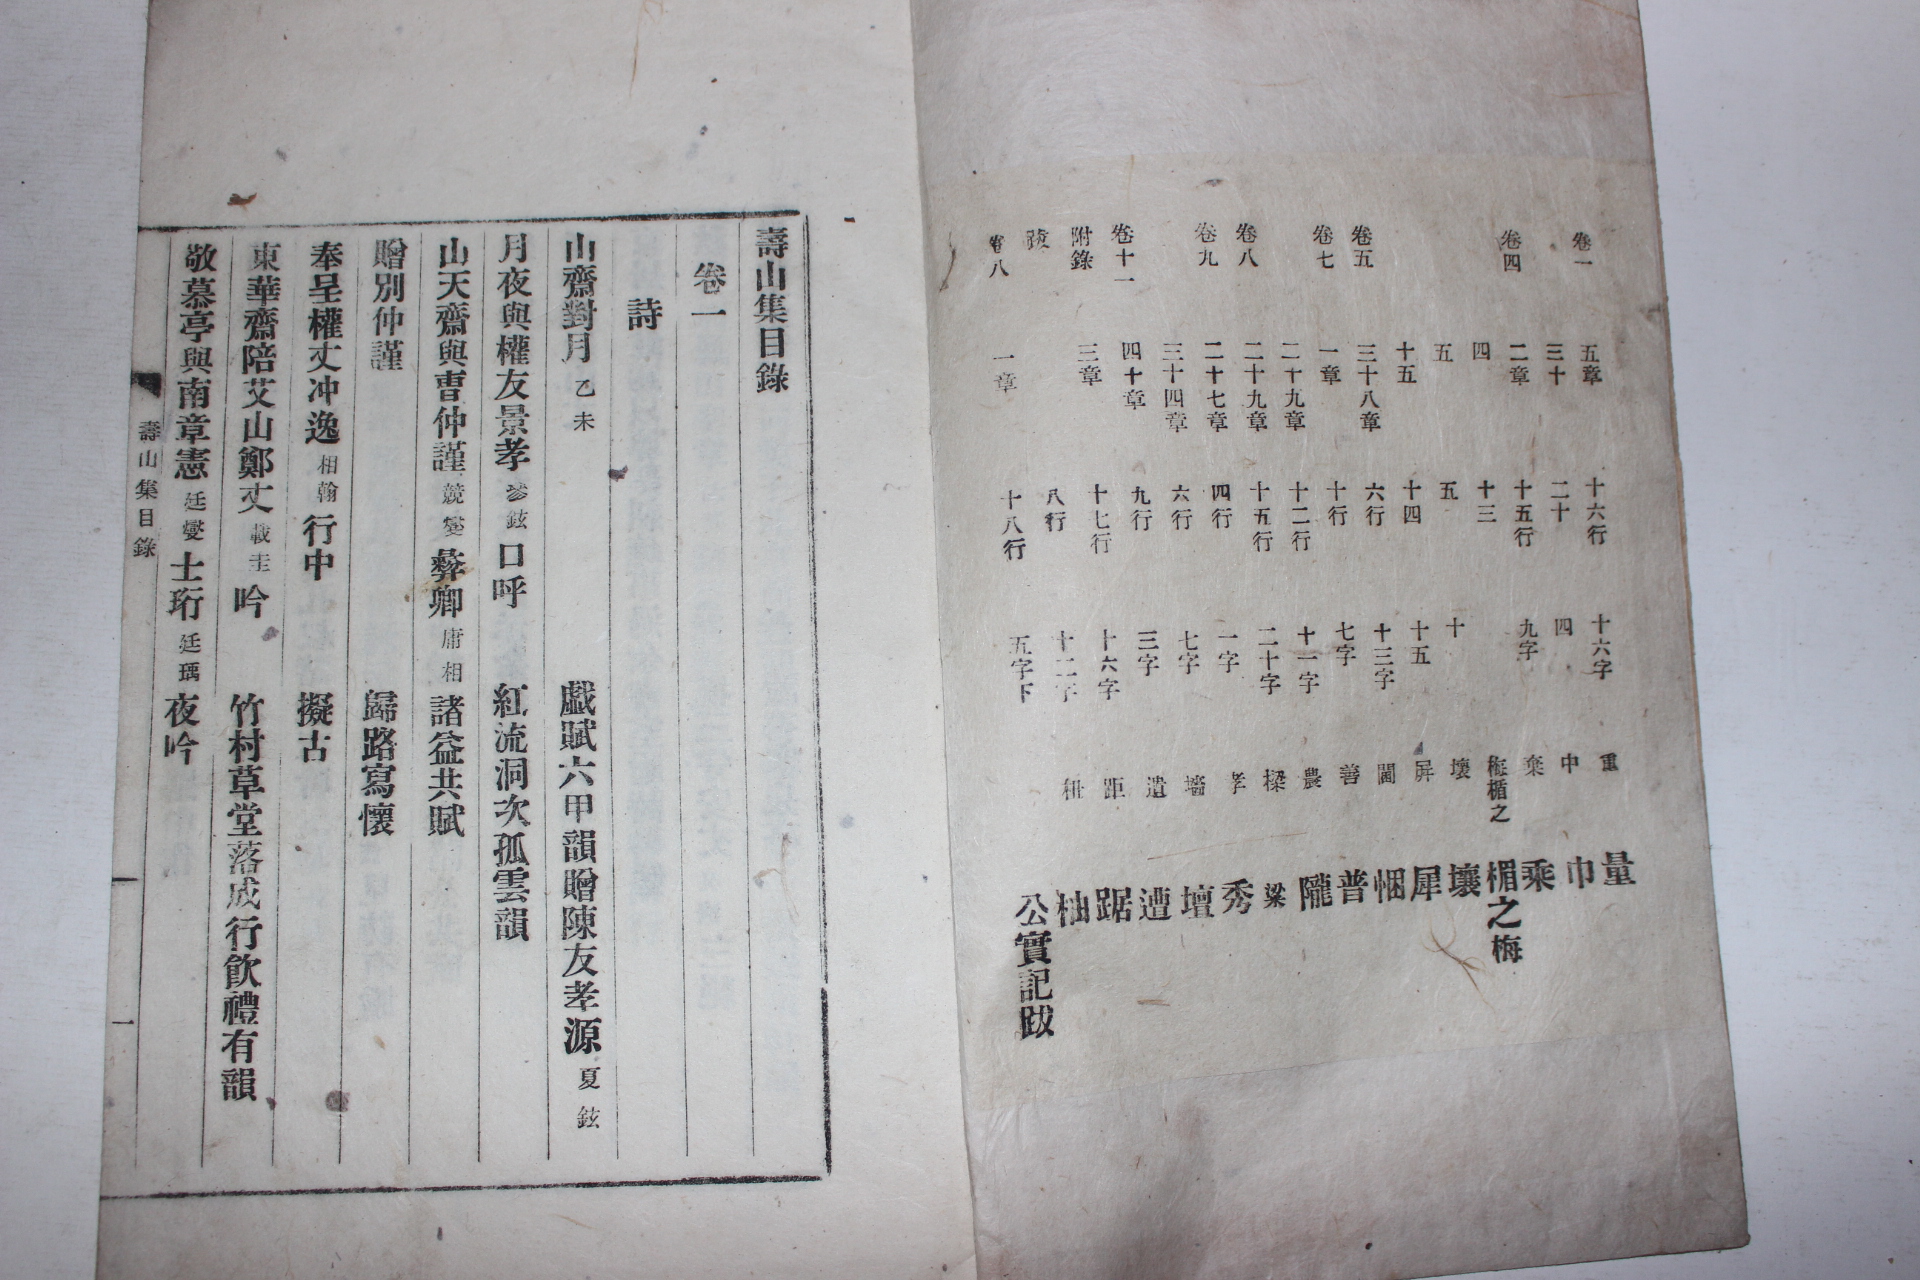 卷一 五章 十六行 十六字 重 量
三十 二十 四 中 巾
卷四 二章 十五行 九字 棄 乘
四 十三 梅楣之 楣之梅
五 五 十 壞 壤
十五 十四 十五 屛 犀
卷五 三十八章 六行 十三字 閫 悃
卷七 一章 十行 七字 善 普
二十九章 十二行 十一字 農 隴
卷八 二十九章 十五行 二十字 樑 梁
卷九 二十七章 四行 一字 孝 秀
三十四章 六行 七字 墻 壇
卷十一 四十章 九行 三字 遣 遭
附錄 三章 十七行 十六字 距 踞
跋 八行 十二字 柚
卷八 一章 十八行 五字下 公實記跋
壽山集目錄
卷一
詩
山齋對月 乙未 戱賦六甲韻贈陳友孝源 夏鉉
月夜與權友景孝 鉉 口呼 紅流洞次孤雲韻
山天齋與曺仲謹 兢燮 彝卿 庸相 諸益共賦
贈別仲謹 歸路寫懷
奉呈權丈冲逸 相翰 行中 擬古
東華齋陪艾山鄭丈 載圭 吟 竹村草堂落成行飮禮有韻
敬慕亭與南章憲 廷燮 士珩 廷瑀 夜吟
壽山集目錄 一